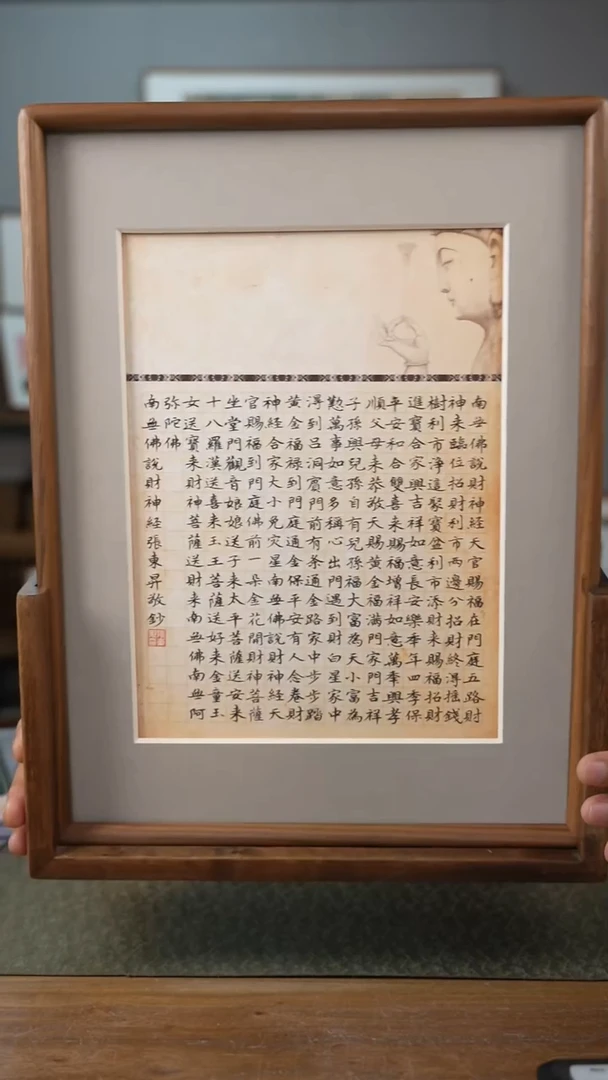 南無佛說財神經天官賜福在門庭五路財
神來臨位招財利市兩邊分招財終淂搖錢
樹利市淨這聚寶盆利市添財來賜福招財
進寶合家興吉利如意長安樂年年四季保
平安和合雙喜來賜福增祥如意萬年興孝
順父母來恭敬天賜黃金福滿門家門吉祥
子孫興兒孫自有兒孫福大富為天小富為
懃萬事如意多稱心出門遇到財白星家中
淂到呂洞賓門前有条通金路家中步步踏
黃金福祿到門庭通金保平安有人念卷財
神經合家大小免灾星南無佛說財神經天
官賜福到門庭佛前一朵金花開財神菩薩
坐堂門觀音娘娘送子來太平菩薩送安來
十八羅漢送喜來王王菩薩送好來金童玉
女送寶來財神菩薩送財來南無佛南無阿
弥陀佛
南無佛說財神經張東昇敬鈔